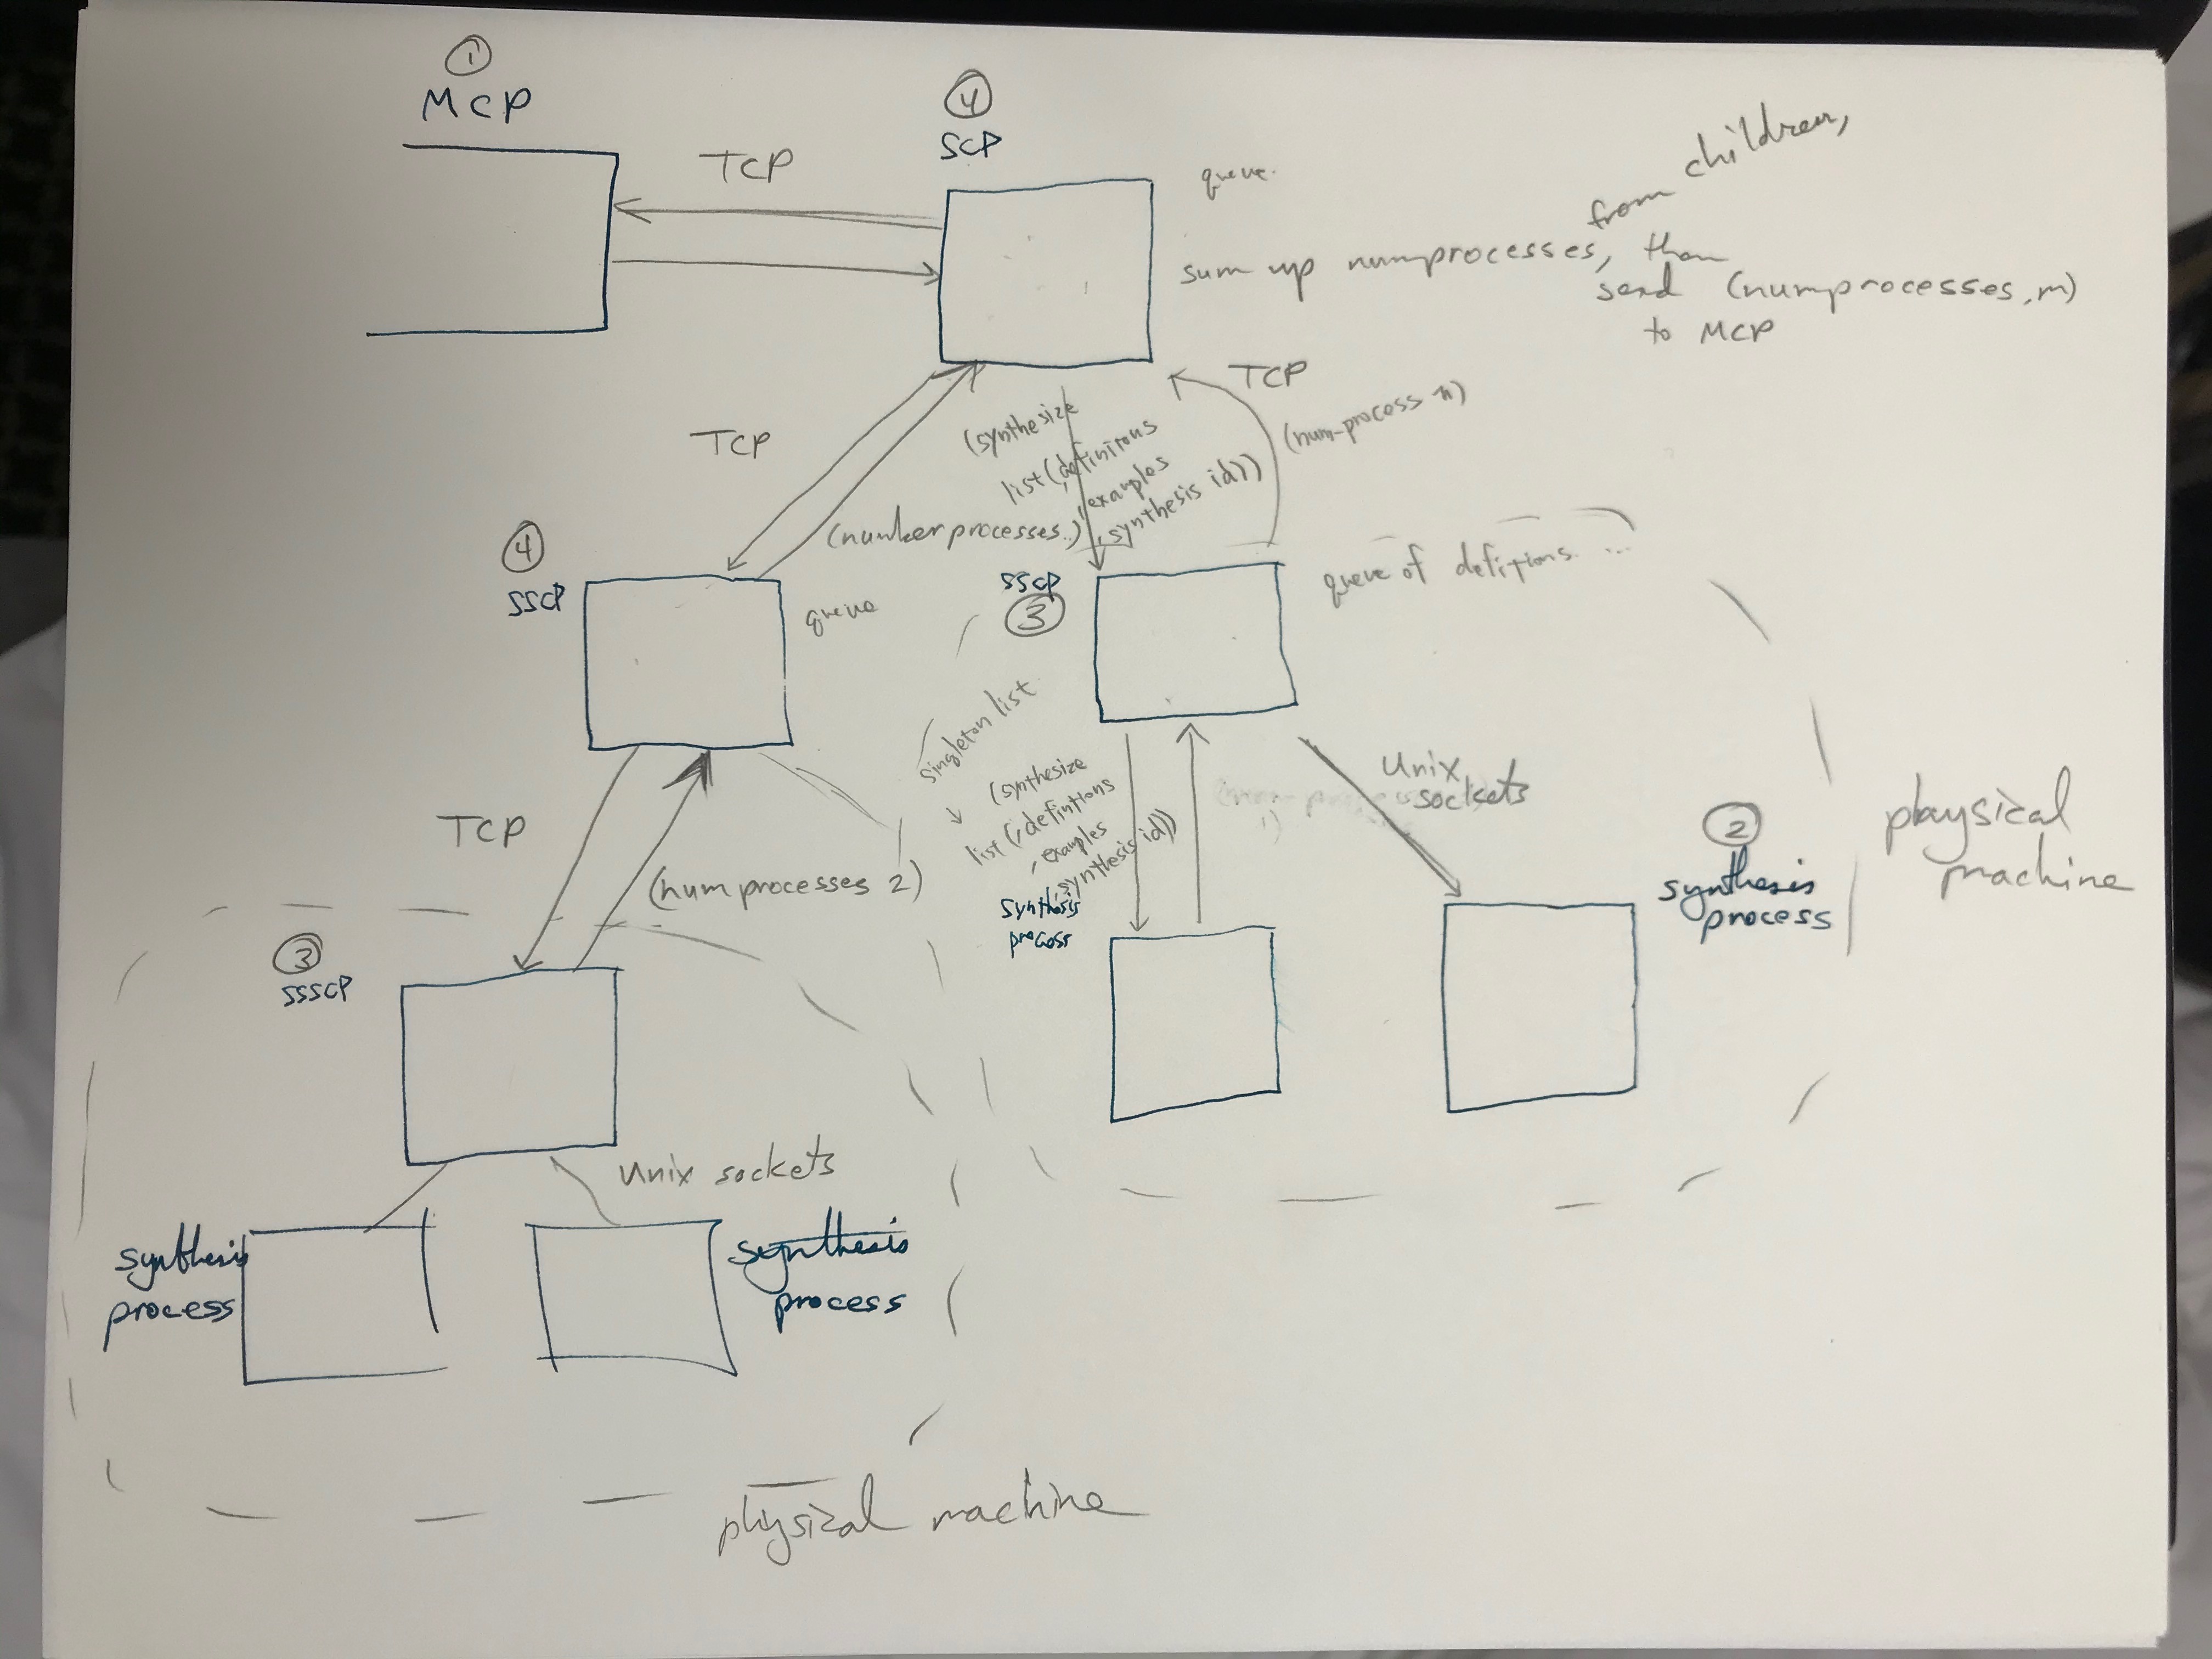 ①
MCP
TCP
④
SCP
queue.
from children,
sum up numprocesses, then
send (numprocesses, m)
to MCP
TCP
(synthesize
list (,definitions
,examples
,synthesis id))
TCP
(num-process n)
(number processes..)
④
SSCP
queue
SSCP
③
queue of defitions. ...
singleton list
(synthesize
list (,defintions
, examples
,synthesis id))
synthesis
process
Unix
sockets
②
synthesis
process
physical
machine
TCP
(numprocesses 2)
③
SSSCP
Unix sockets
synthesis
process
synthesis
process
physical machine